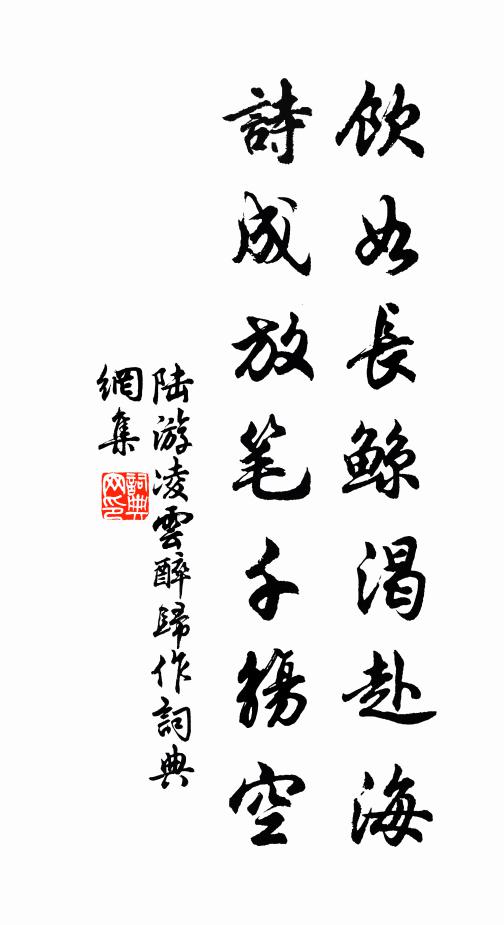 飲如長鲸渴赴海
詩成放笔千觴空
陆游凌雲醉歸作詞典
網集
詞典
网印